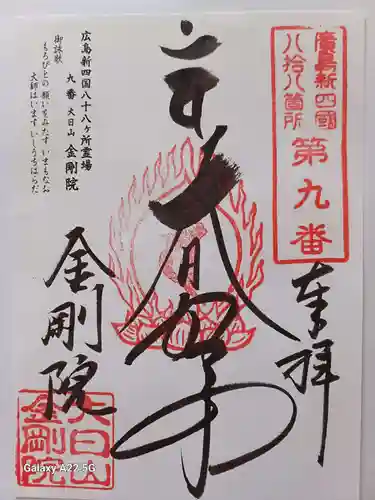 廣島新四國
八拾八箇所
第九番
奉拝
広島新四国八十八ヶ所霊場
九番 大日山 金剛院
御詠歌
もろびとの 願いをみたす いまもなお
大師はいます いしうちはらだ
金剛院
大日山
金剛院
Galaxy A22 5G